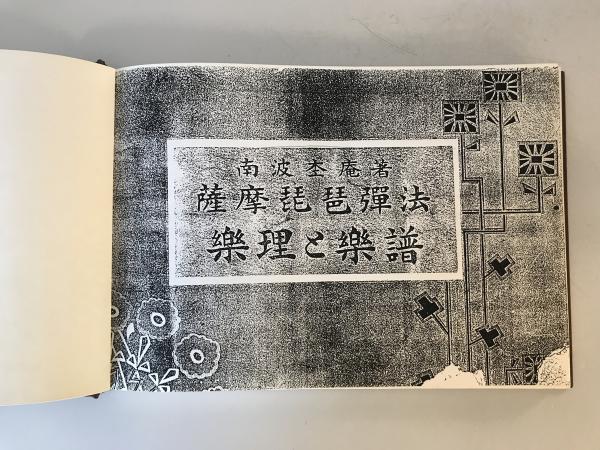 南波杢庵著
薩摩琵琶彈法
樂理と樂譜